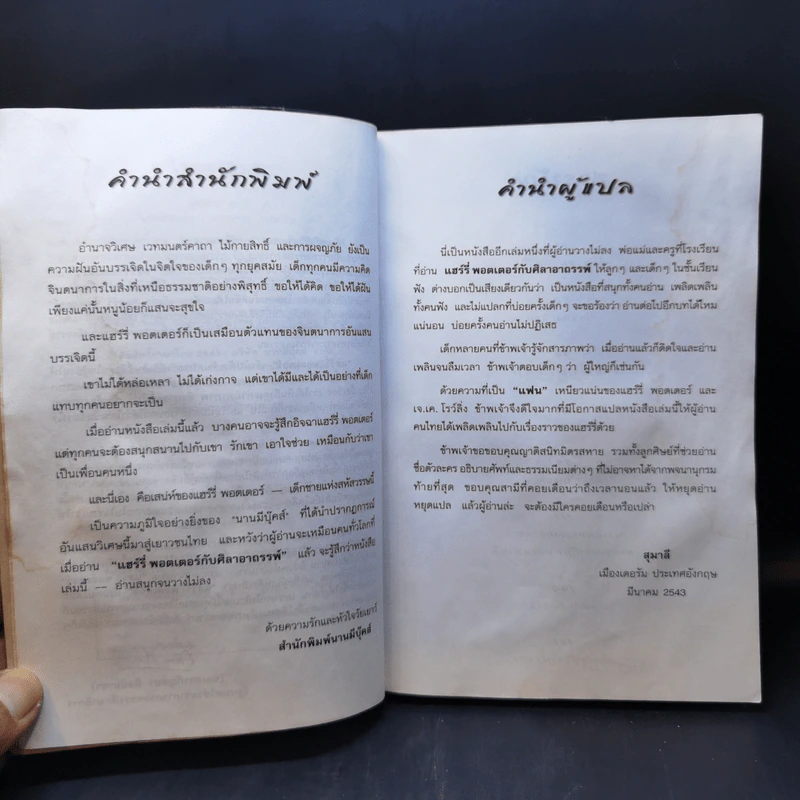 คำนำสำนักพิมพ์
อำนาจวิเศษ เวทมนตร์คาถา ไม้กายสิทธิ์ และการผจญภัย ยังเป็น
ความฝันอันบรรเจิดในจิตใจของเด็กๆ ทุกยุคสมัย เด็กทุกคนมีความคิด
จินตนาการในสิ่งที่เหนือธรรมชาติอย่างพิสุทธิ์ ขอให้ได้คิด ขอให้ได้ฝัน
เพียงแค่นั้นหนูน้อยก็แสนจะสุขใจ
และแฮร์รี่ พอตเตอร์ก็เป็นเสมือนตัวแทนของจินตนาการอันแสน
บรรเจิดนี้
เขาไม่ได้หล่อเหลา ไม่ได้เก่งกาจ แต่เขาได้มีและได้เป็นอย่างที่เด็ก
แทบทุกคนอยากจะเป็น
เมื่ออ่านหนังสือเล่มนี้แล้ว บางคนอาจจะรู้สึกอิจฉาแฮร์รี่ พอตเตอร์
แต่ทุกคนจะต้องรู้สึกสนุกสนานไปกับเขา รักเขา เอาใจช่วย เหมือนกับว่าเขา
เป็นเพื่อนคนหนึ่ง
และนี่เอง คือเสน่ห์ของแฮร์รี่ พอตเตอร์ — เด็กชายแห่งสหัสวรรษนี้
เป็นความภูมิใจอย่างยิ่งของ 'นานมีบุ๊คส์' ที่ได้นำปรากฏการณ์
อันแสนวิเศษนี้มาสู่เยาวชนไทย และหวังว่าผู้อ่านจะเหมือนคนทั่วโลกที่
เมื่ออ่าน "แฮร์รี่ พอตเตอร์กับศิลาอาถรรพ์" แล้ว จะรู้สึกว่าหนังสือ
เล่มนี้ — อ่านสนุกจนวางไม่ลง
ด้วยความรักและหัวใจวัยเยาว์
สำนักพิมพ์นานมีบุ๊คส์
คำนำผู้แปล
นี่เป็นหนังสืออีกเล่มหนึ่งที่ผู้อ่านวางไม่ลง พ่อแม่และครูที่โรงเรียน
ที่อ่าน แฮร์รี่ พอตเตอร์กับศิลาอาถรรพ์ ให้ลูกๆ และเด็กๆ ในชั้นเรียน
ฟัง ต่างบอกเป็นเสียงเดียวกันว่า เป็นหนังสือที่สนุกทั้งคนอ่าน เพลิดเพลิน
ทั้งคนฟัง และไม่แปลกที่บ่อยครั้งเด็กๆ จะขอร้องว่า อ่านต่อไปอีกบทได้ไหม
แน่นอน บ่อยครั้งคนอ่านไม่ปฏิเสธ
เด็กหลายคนที่ข้าพเจ้ารู้จักสารภาพว่า เมื่ออ่านแล้วก็ติดใจและอ่าน
เพลินจนลืมเวลา ข้าพเจ้าตอบเด็กๆ ว่า ผู้ใหญ่ก็เช่นกัน
ด้วยความที่เป็น "แฟน" เหนียวแน่นของแฮร์รี่ พอตเตอร์ และ
เจ.เค. โรว์ลิ่ง ข้าพเจ้าจึงดีใจมากที่มีโอกาสแปลหนังสือเล่มนี้ให้ผู้อ่าน
คนไทยได้เพลิดเพลินไปกับเรื่องราวของแฮร์รี่ด้วย
ข้าพเจ้าขอขอบคุณญาติสนิทมิตรสหาย รวมทั้งลูกศิษย์ที่ช่วยอ่าน
ชื่อตัวละคร อธิบายศัพท์และธรรมเนียมต่างๆ ที่ไม่อาจหาได้จากพจนานุกรม
ท้ายที่สุด ขอบคุณสามีที่คอยเตือนว่าถึงเวลานอนแล้ว ให้หยุดอ่าน
หยุดแปล แล้วผู้อ่านล่ะ จะต้องมีใครคอยเตือนหรือเปล่า
สุมาลี
เมืองเดอรัม ประเทศอังกฤษ
มีนาคม 2543